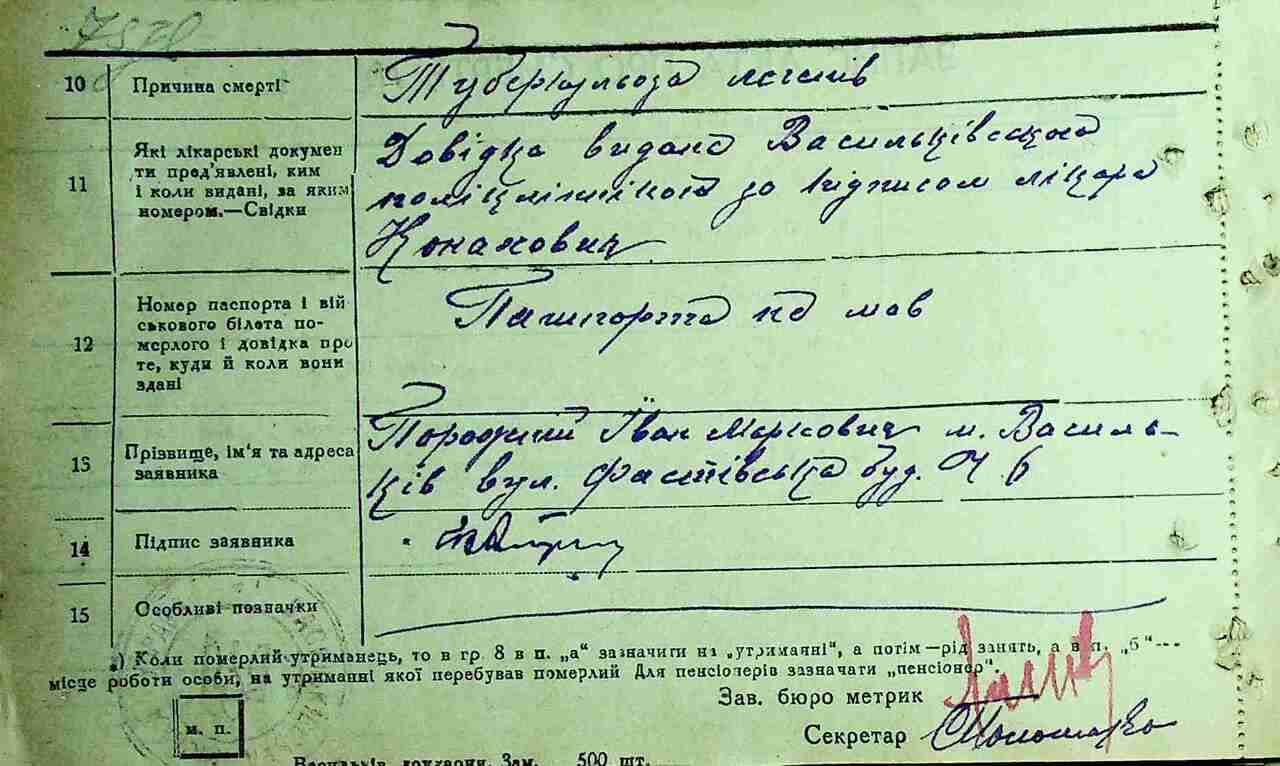 10 Причина смерті Туберкульоза легенів
11 Які лікарські докумен
ти пред'явлені, ким
і коли видані, за яким
номером.—Свідки
Довідка видана Васильківською
поліклінікою за підписом лікаря
Конахович
12 Номер паспорта і вій
ськового білета по-
мерлого і довідка про
те, куди й коли вони
здані
Пашпорта не мав
13 Прізвище, ім'я та адреса
заявника
Іван Маркович м. Василь-
ків вул. Фастівська буд. Ч. 6
14 Підпис заявника
15 Особливі позначки
*) Коли померлий утриманець, то в гр. 8 в п. „а" зазначити на „утриманні", а потім—рід занять, а в п. „б"—
місце роботи особи, на утриманні якої перебував померлий Для пенсіонерів зазначати „пенсіонер".
Зав. бюро метрик
м. п.
Секретар
Васильків, друкарня. Зам. 500 шт.